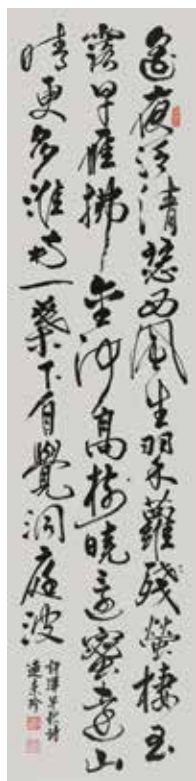 遙夜泛清瑟西風生翠蘿殘螢棲玉
露早雁拂金河高樹曉還密遠山
晴更多淮南一葉下自覺洞庭波
許渾早秋詩